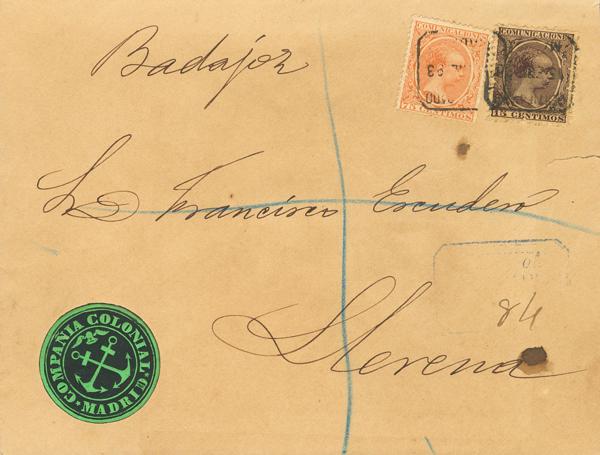 Badajoz
COMUNICACIONES
75 CENTIMOS
COMUNICACIONES
15 CENTIMOS
Sr. D. Francisco Escudero
84
Llerena
COMPAÑIA COLONIAL
MADRID